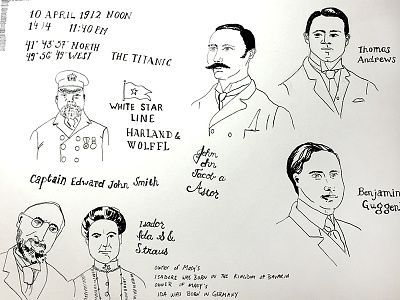 10 APRIL 1912 NOON
14/4 11:40 PM
41° 43' 57" NORTH
49° 56' 49" WEST
THE TITANIC
WHITE STAR
LINE
HARLAND &
WOLFFL
Captain Edward John Smith
John
Jacob a
Astor
Thomas
Andrews
Benjamin
Guggen
Isador
Ida S &
Straus
OWNER of MACY'S
ISADORE WAS BORN IN THE KINGDOM of BAVARIA
OWNER OF MACY'S
IDA WAS BORN IN GERMANY